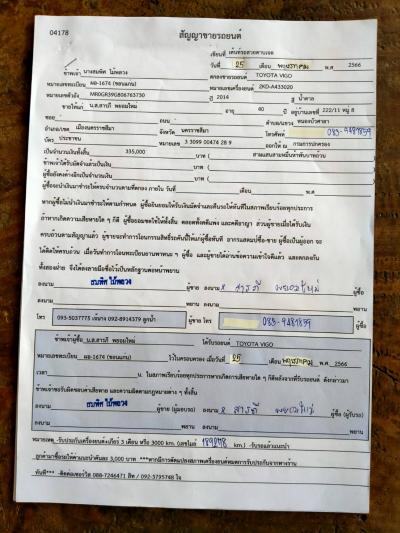 04178
สัญญาขายรถยนต์
เขียนที่ เต็นท์รถสวยตามเจต
วันที่ 25 เดือน พฤษภาคม พ.ศ. 2566
ข้าพเจ้า นางสมพิศ ไม้พลวง ตกลงขายรถยนต์ TOYOTA VIGO
หมายเลขทะเบียน ผล-1674 (ขอนแก่น) หมายเลขเครื่องยนต์ 2KD-A433020
หมายเลขตัวถัง MR0GR39G806763730 ปี 2014 สี น้ำตาล
ขายให้แก่ น.ส.สารภี พยอมใหม่ อายุ 40 ปี อยู่บ้านเลขที่ 222/11 หมู่ 8
ซอย - ถนน - ตำบล/แขวง หนองบัวศาลา
อำเภอ/เขต เมืองนครราชสีมา จังหวัด นครราชสีมา โทรศัพท์ 083-9481859
บัตร ประชาชน หมายเลข 3 3099 00474 28 9 ออกให้ ณ กรมการปกครอง
เป็นจำนวนเงินทั้งสิ้น 335,000 บาท ( สามแสนสามหมื่นห้าพันบาทถ้วน
ข้าพเจ้าได้รับมัดจำแล้วเป็นเงิน บาท (
ผู้ซื้อยังคงค้างอีกเป็นจำนวนเงิน บาท (
ผู้ซื้อจะนำเงินมาชำระให้ครบจำนวนตามที่ตกลง ภายใน วันที่ เดือน พ.ศ.
หากผู้ซื้อไม่นำเงินมาชำระให้ตามกำหนด ผู้ซื้อยินยอมให้ริบเงินมัดจำและคืนรถให้ทันทีในสภาพเรียบร้อยทุกประการ
ถ้าหากเกิดความเสียหายใด ๆ ก็ดี ผู้ซื้อยอมชดใช้ให้ทั้งสิ้น ตลอดทั้งคดีแพ่ง และคดีอาญา ส่วนผู้ขายเมื่อได้รับเงิน
ครบถ้วนตามสัญญาแล้ว ผู้ขายจะทำการโอนกรรมสิทธิ์รถคันนี้ให้แก่ผู้ซื้อทันที อากรแสตมป์ซื้อ-ขาย ผู้ซื้อเป็นผู้ออก จะ
ได้คิดให้ครบถ้วน เมื่อวันทำการโอนทะเบียนยานพาหนะ ๆ ผู้ซื้อ และผู้ขายได้อ่านข้อความเข้าใจดีแล้ว และตกลงกัน
ทั้งสองฝ่าย จึงได้ลงลายมือชื่อไว้เป็นหลักฐานต่อหน้าพยาน
ลงนาม สมพิศ ไม้พลวง ผู้ขาย ลงนาม x สารภี พยอมใหม่ ผู้ซื้อ
ลงนาม พยาน ลงนาม พยาน
โทร 093-5037775 092-8914379 ผู้ขาย โทร 083-9481859 ผู้ซื้อ
ข้าพเจ้าผู้ซื้อ น.ส.สารภี พยอมใหม่ ได้รับรถยนต์ TOYOTA VIGO
หมายเลขทะเบียน ผล-1674 (ขอนแก่น) ไว้ในครอบครอง เมื่อวันที่ 25 พฤษภาคม พ.ศ. 2566
เวลา น. ในสภาพเรียบร้อยทุกประการหากเกิดการเสียหายใด ๆ ก็ดีหลังจากที่รับรถยนต์ ดังกล่าวมา
ข้าพเจ้าขอรับผิดชอบค่าเสียหาย และความผิดตามกฎหมายต่าง ๆ ทั้งสิ้น
ลงนาม สมพิศ ไม้พลวง ผู้ขาย (ผู้มอบรถ) ลงนาม x สารภี พยอมใหม่ ผู้ซื้อ (ผู้รับรถ)
ลงนาม พยาน ลงนาม พยาน
หมายเหตุ -รับประกันเครื่องยนต์+เกียร์ 3 เดือน หรือ 3000 km. (เลขไมล์ km.) -รับรถแล้วแนะนำ
ลูกค้ามาซื้อรถให้ค่าแนะนำคันละ 3,000 บาท ***หากมีการดัดแปลงสภาพเครื่องยนต์หมดการรับประกันจากทางร้าน
ทันที*** -ติดต่อเซอร์วิส 088-7246471 / 092-3795748